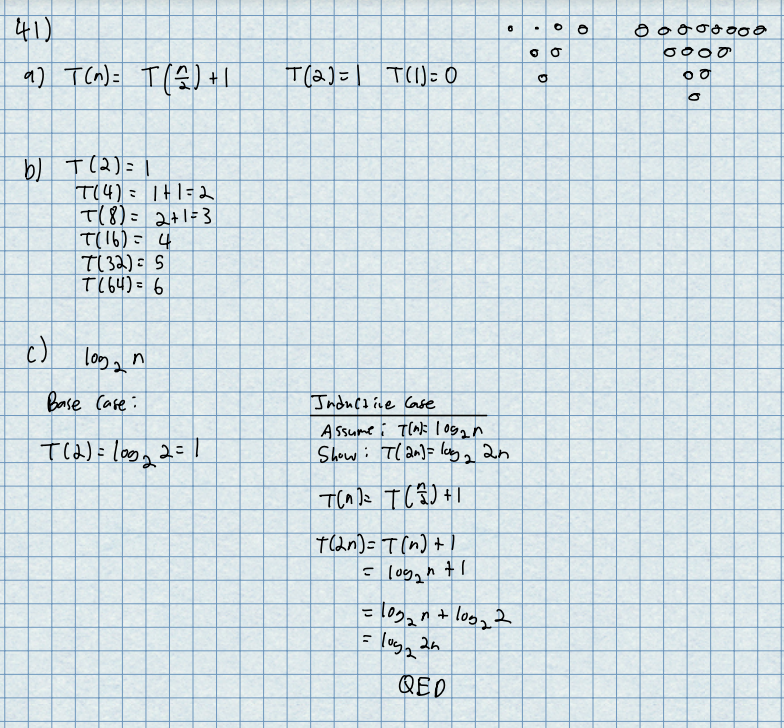 41)
a) T(n) = T(n/2) + 1 T(2) = 1 T(1) = 0
b) T(2) = 1
T(4) = 1+1=2
T(8) = 2+1=3
T(16) = 4
T(32) = 5
T(64) = 6
c) log₂ n
Base Case:
T(2) = log₂ 2 = 1
Inductive Case
Assume: T(n) = log₂ n
Show: T(2n) = log₂ 2n
T(n) = T(n/2) + 1
T(2n) = T(n) + 1
= log₂ n + 1
= log₂ n + log₂ 2
= log₂ 2n
QED